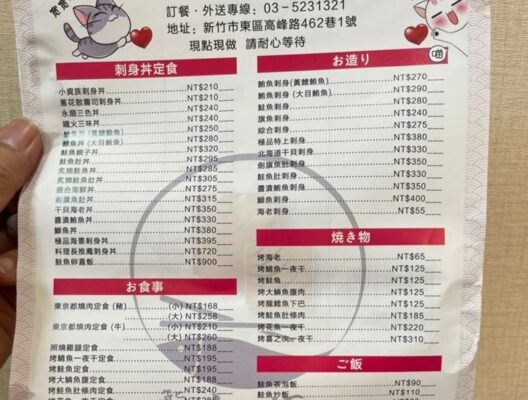 訂餐・外送專線：03－5231321
地址：新竹市東區高峰路462巷1號
現點現做 請耐心等待
刺身丼定食
小資族刺身丼 NT$210
蔥花散壽司刺身丼 NT$210
永順三色丼 NT$240
鐵火三味丼 NT$240
鮪魚丼（黃鰭鮪魚） NT$250
鮪魚丼（大目鮪魚） NT$280
鮭魚親子丼 NT$320
鮭魚肚丼 NT$295
炙燒鮭魚丼 NT$285
炙燒鮭魚肚丼 NT$305
綜合海鮮丼 NT$275
劍旗魚肚丼 NT$315
干貝海老丼 NT$350
醬漬鮪魚丼 NT$330
鰤魚丼 NT$380
極品海景刺身丼 NT$395
料理長推薦刺身丼 NT$720
鮭魚卵蓋飯 NT$900
お食事
東京都燒肉定食（豬） (小) NT$168
(大) NT$258
東京都燒肉定食（牛） (小) NT$210
(大) NT$260
照燒雞腿定食 NT$188
烤鯖魚一夜干定食 NT$195
烤鮭魚定食 NT$195
烤大鯖魚腹定食 NT$188
烤鮭魚肚條肉定食 NT$240
お造り
鮪魚刺身(黃鰭鮪魚) NT$270
鮪魚刺身 (大目鮪魚) NT$290
鮭魚刺身 NT$210
旗魚刺身 NT$240
綜合刺身 NT$275
極品特上刺身 NT$380
北海道干貝刺身 NT$330
劍旗魚肚刺身 NT$350
鮭魚肚刺身 NT$330
醬漬鮪魚刺身 NT$350
鰤魚刺身 NT$400
海老刺身 NT$55
焼き物
烤海老 NT$65
烤鯖魚一夜干 NT$125
烤鮭魚 NT$125
烤大鯖魚腹肉 NT$125
烤龍鱈魚下巴 NT$125
烤鮭魚肚條肉 NT$185
烤花魚一夜干 NT$220
烤喜之次一夜干 NT$310
ご飯
鮭魚茶泡飯 NT$90
鮭魚炒飯 NT$110